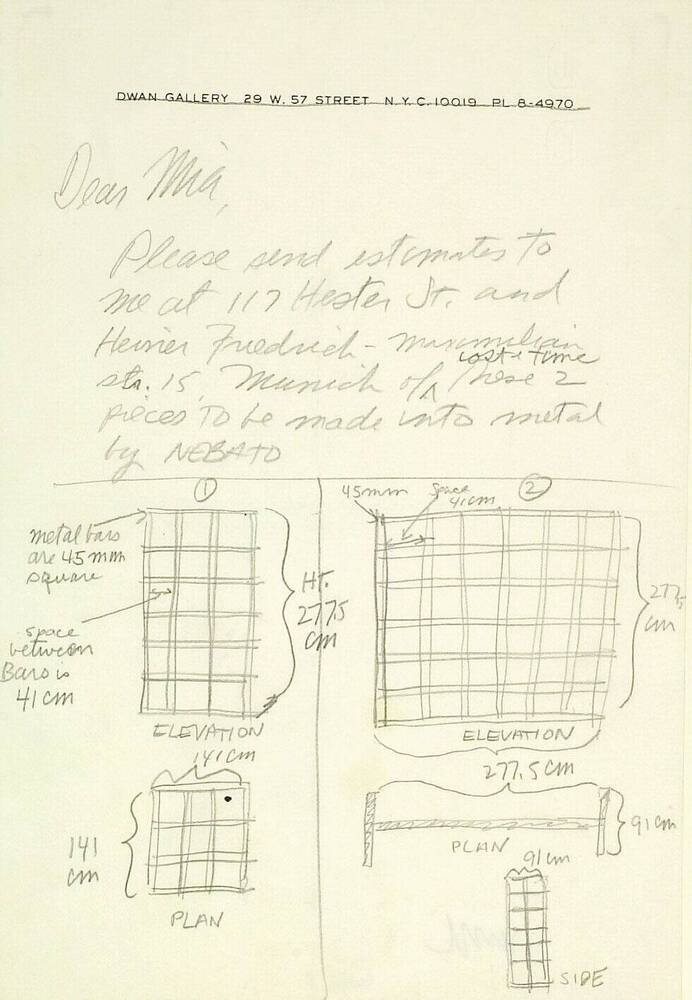 DWAN GALLERY 29 W. 57 STREET N.Y.C. 10019 PL 8-4970
Dear Mia,
Please send estimates to
me at 117 Hester St. and
Heiner Friedrich - maximilian
cost & time
str. 15, Munich of these 2
pieces to be made into metal
by NEBATO
1
metal bars
are 45 mm
square
space
between
Bars is
41 cm
HT.
277.5
cm
ELEVATION
141 cm
141
cm
PLAN
2
45mm
Space
41 cm
277.5
cm
ELEVATION
277.5 cm
PLAN
91 cm
91 cm
SIDE